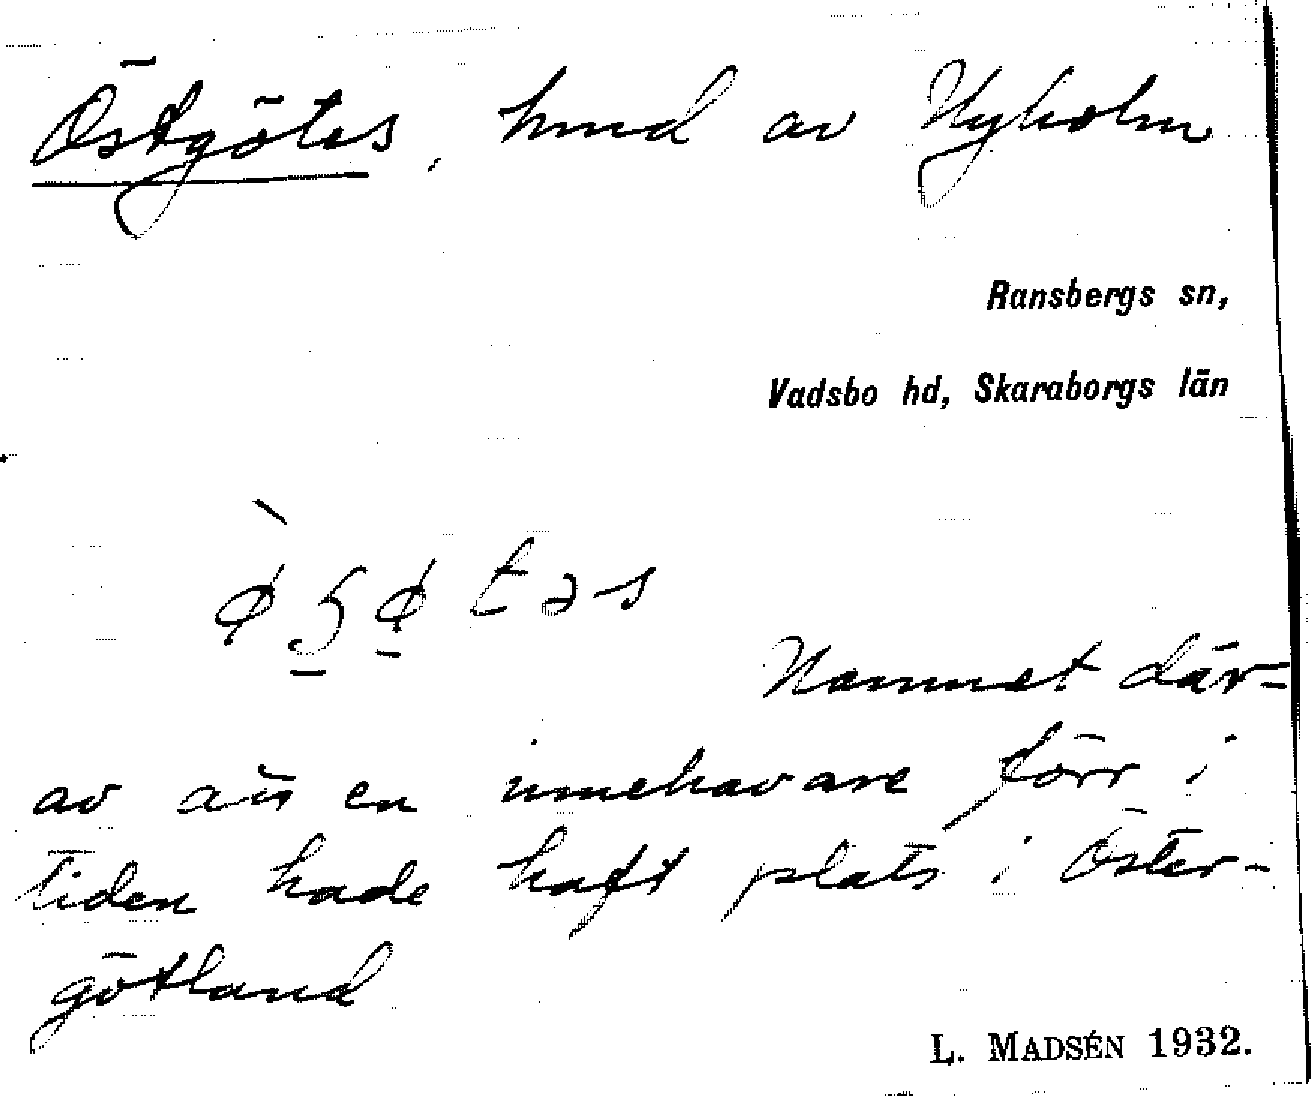 Östgötes, hmd av Nyholm
Ransbergs sn,
Vadsbo hd, Skaraborgs län
Namnet där-
av att en innehavare förr i
tiden hade haft plats i Öster-
götland
L. MADSÉN 1932.